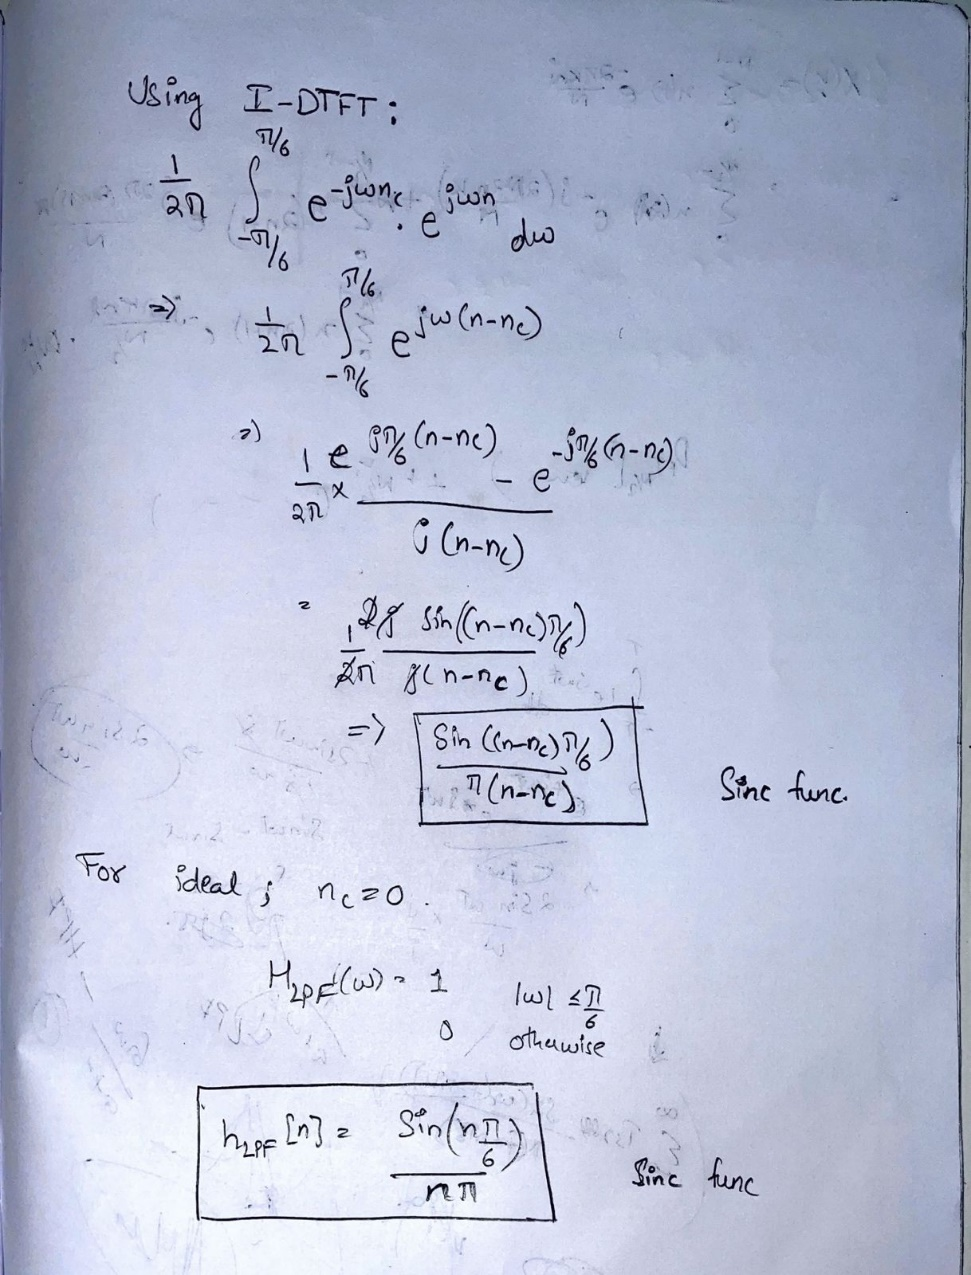 Using I-DTFT ;
1/2π ∫_{-π/6}^{π/6} e^{-jωn_c} . e^{jωn} dω
=> 1/2π ∫_{-π/6}^{π/6} e^{jω(n-n_c)}
=) 1/2π × (e^{jπ/6(n-n_c)} - e^{-jπ/6(n-n_c)}) / j(n-n_c)
= 1/2π 2j sin((n-n_c)π/6) / j(n-n_c)
=> Sin((n-n_c)π/6) / π(n-n_c) Sinc func.
For ideal ; n_c = 0 .
H_LPF(ω) = 1 |ω| ≤ π/6
0 otherwise
h_LPF[n] = Sin(nπ/6) / nπ Sinc func